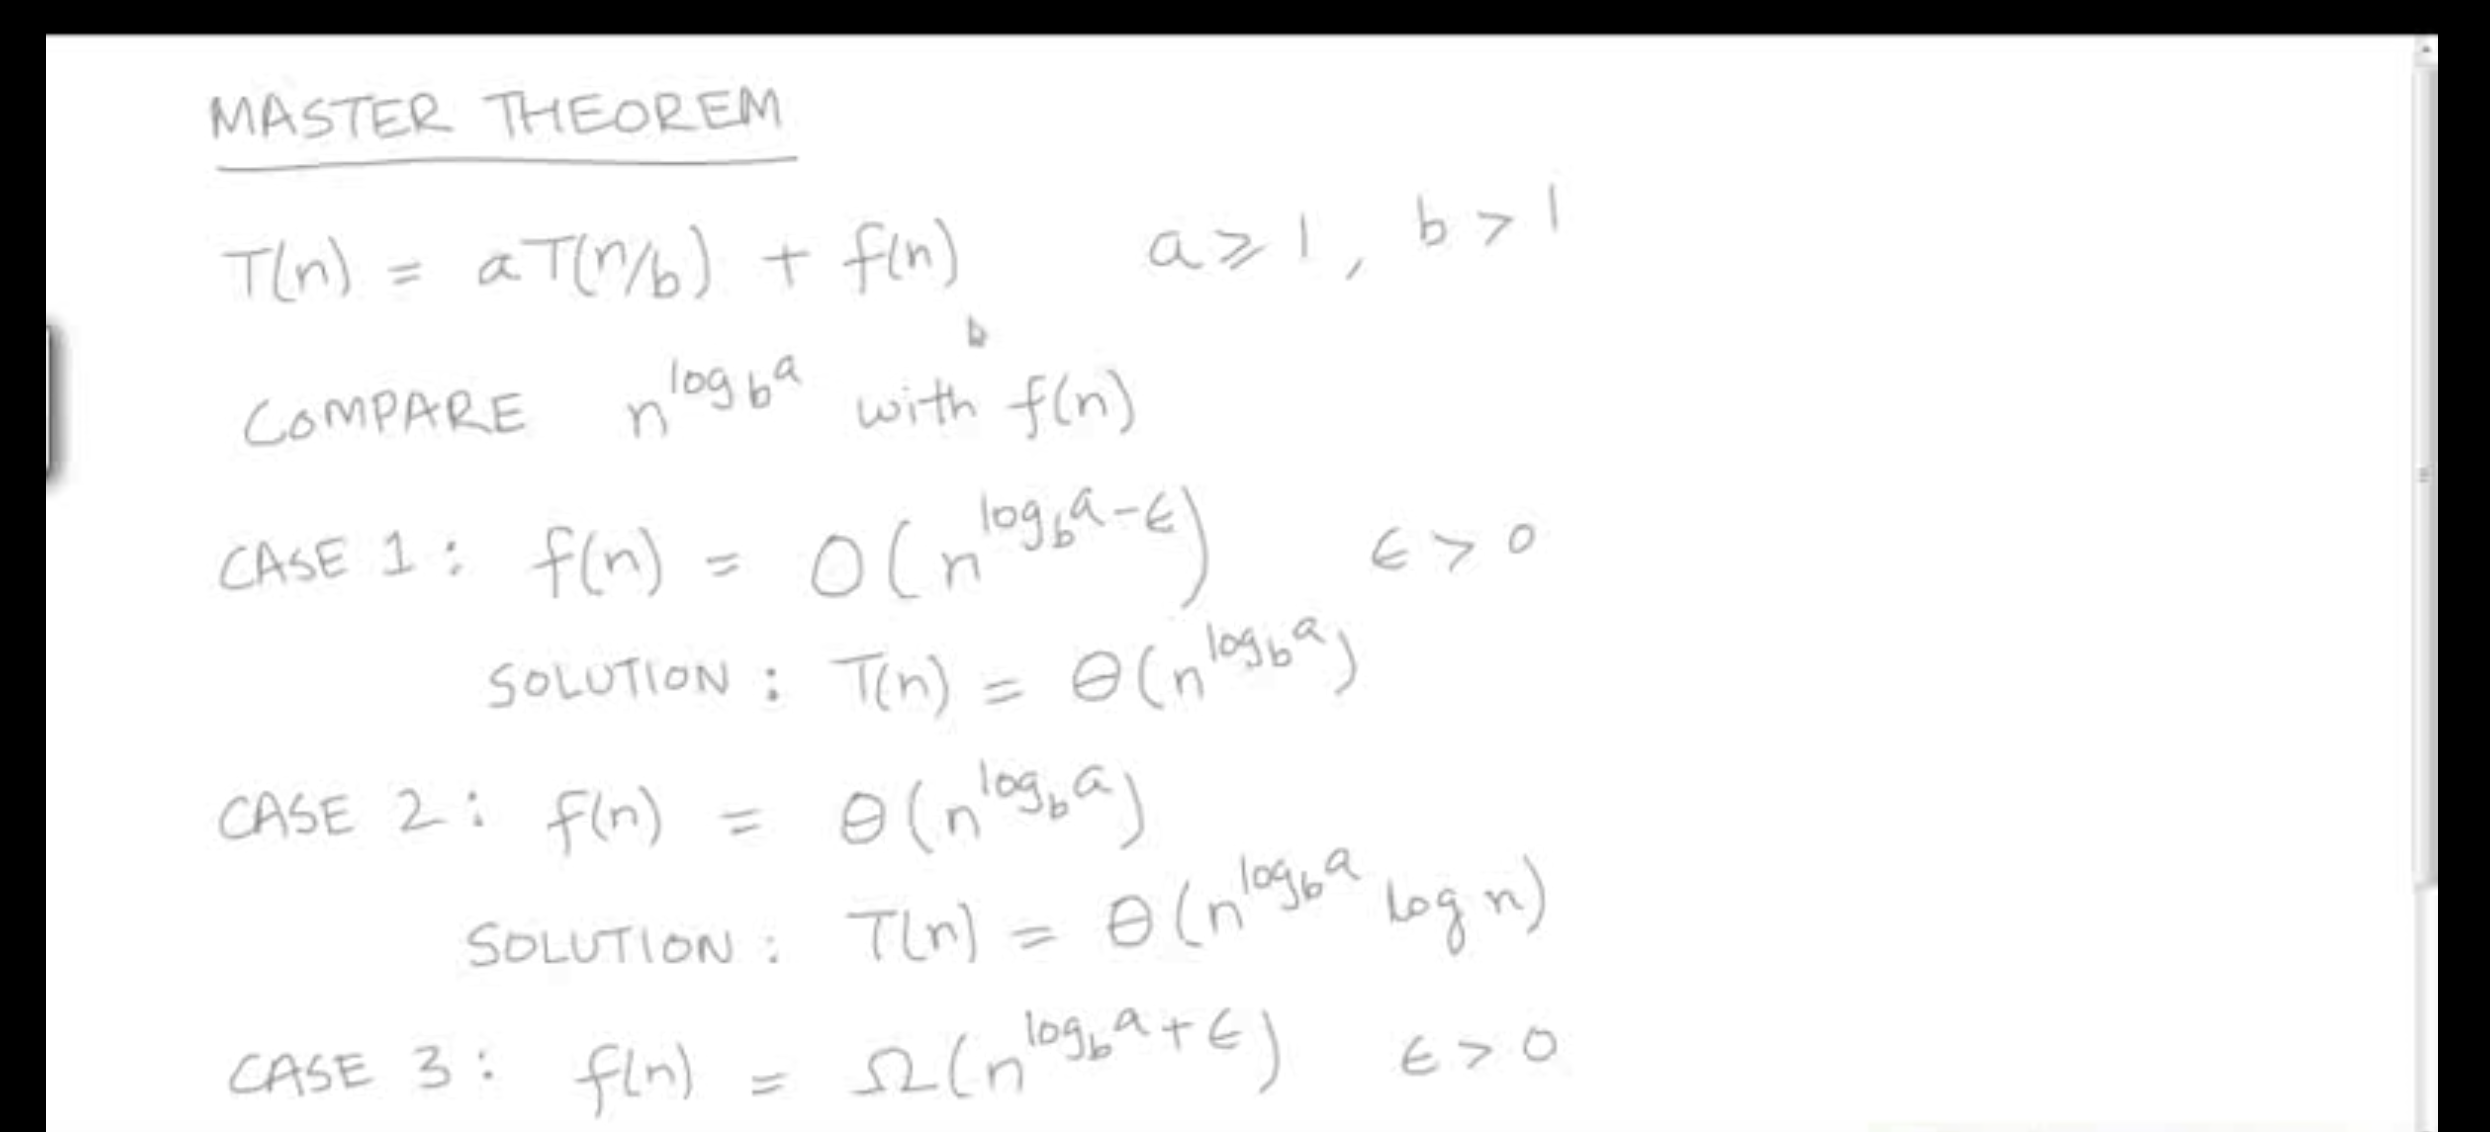 MASTER THEOREM
T(n) = aT(n/b) + f(n) a ⩾ 1, b > 1
COMPARE n^{log_b a} with f(n)
CASE 1 : f(n) = O(n^{log_b a - ϵ}) ϵ > 0
SOLUTION : T(n) = Θ(n^{log_b a})
CASE 2 : f(n) = Θ(n^{log_b a})
SOLUTION : T(n) = Θ(n^{log_b a} log n)
CASE 3 : f(n) = Ω(n^{log_b a + ϵ}) ϵ > 0